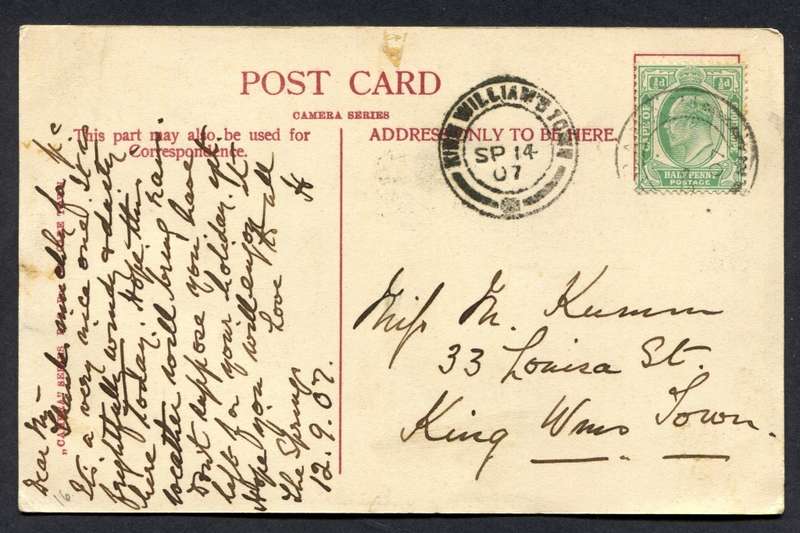 POST CARD
CAMERA SERIES
This part may also be used for
Correspondence.
ADDRESS ONLY TO BE HERE.
KING WILLIAM'S TOWN
SP 14
07
½d
HALFPENNY
POSTAGE
Miss M. Kumm
33 Louisa St.
King Wms Town.
Dear
Thanks muchly for p.c
Its a very nice one. It is
frightfully windy & dusty
here today. Hope this
weather will bring rain.
Dont suppose you have
left for your holiday yet.
Hope you will enjoy it
Love to all
The Springs
12.9.07.
16